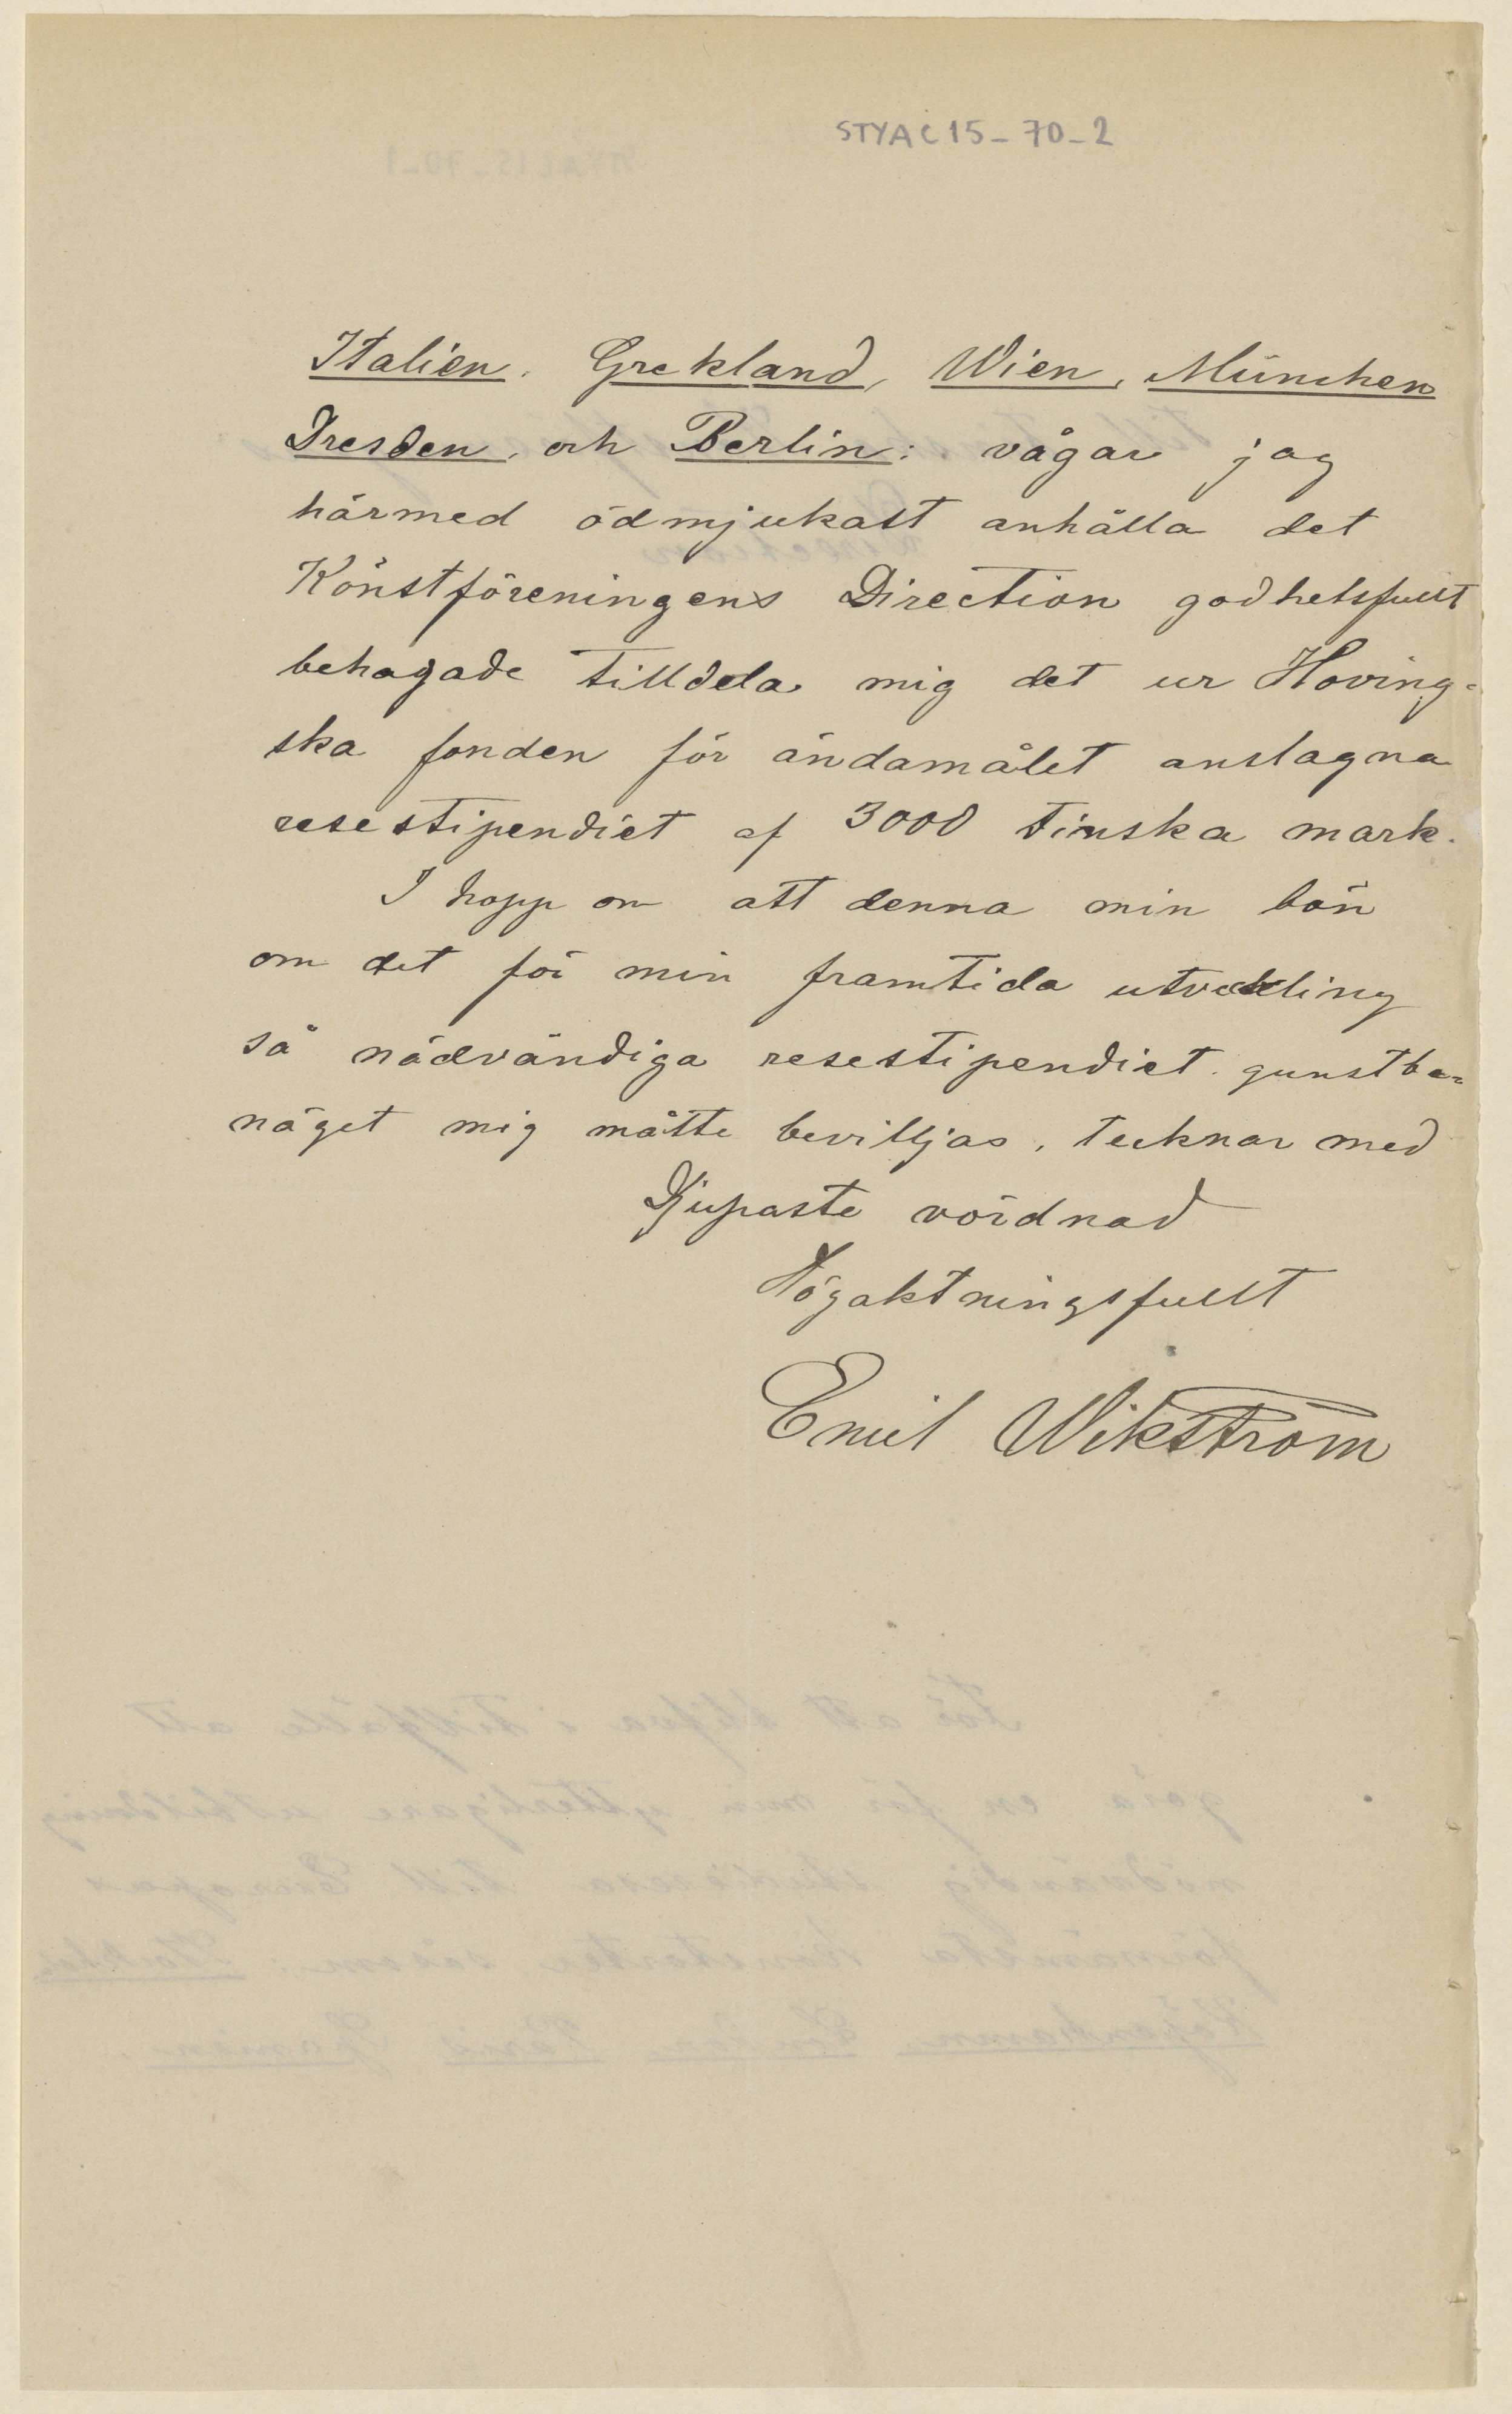 STYAC15-70-2
Italien, Grekland, Wien, München
Dresden, och Berlin: vågar jag
härmed ödmjukast anhålla det
Konstföreningens Direction godhetsfullt
behagade tilldela mig det ur Hoving-
ska fonden för ändamålet anslagna
resestipendiet af 3000 finska mark.
I hopp om att denna min bön
om det för min framtida utveckling
så nödvändiga resestipendiet gunstbe-
näget mig måtte beviljas, tecknar med
Djupaste vördnad
Högaktningsfullt
Emil Wikström